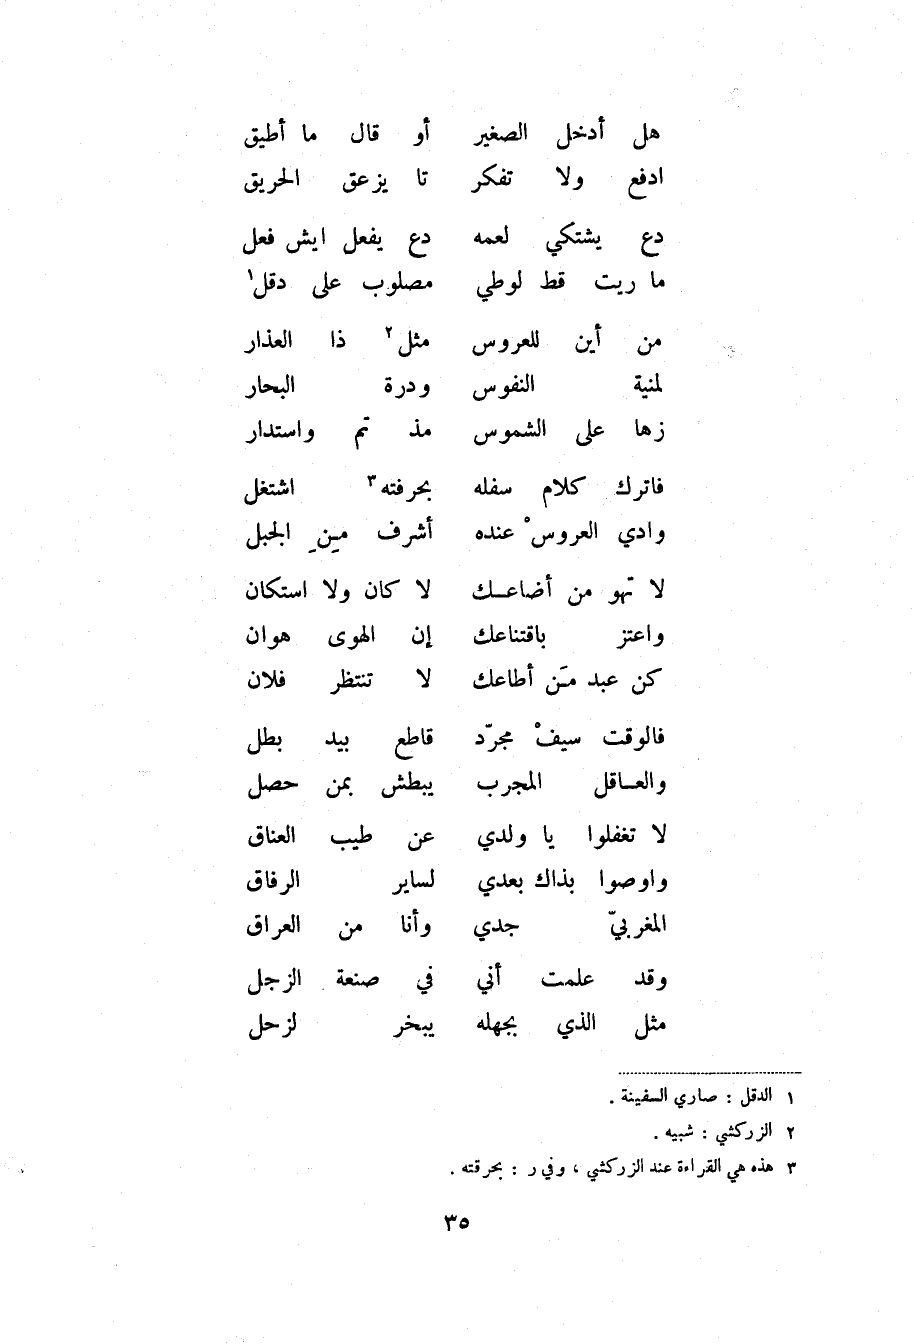 هل أدخل الصغير أو قال ما أطيق
ادفع ولا تفكر تا يزعق الحريق
دع يشتكي لعمه دع يفعل ايش فعل
ما ريت قط لوطي مصلوب على دقل١
من أين للعروس مثل٢ ذا العذار
لمنية النفوس ودرة البحار
زها على الشموس مذ تم واستدار
فاترك كلام سفله بحرفته٣ اشتغل
وادي العروسْ عنده أشرف مِن الجبل
لا تهو من أضاعك لا كان ولا استكان
واعتز باقتناعك إن الهوى هوان
كن عبد مَن أطاعك لا تنتظر فلان
فالوقت سيفْ مجرّد قاطع بيد بطل
والعاقل المجرب يبطش بمن حصل
لا تغفلوا يا ولدي عن طيب العناق
واوصوا بذاك بعدي لساير الرفاق
المغربيّ جدي وأنا من العراق
وقد علمت أني في صنعة الزجل
مثل الذي بجهله يبخر لزحل
١ الدقل : صاري السفينة .
٢ الزركشي : شبيه .
٣ هذه هي القراءة عند الزركشي ، وفي ر : بحرقته .
٣٥